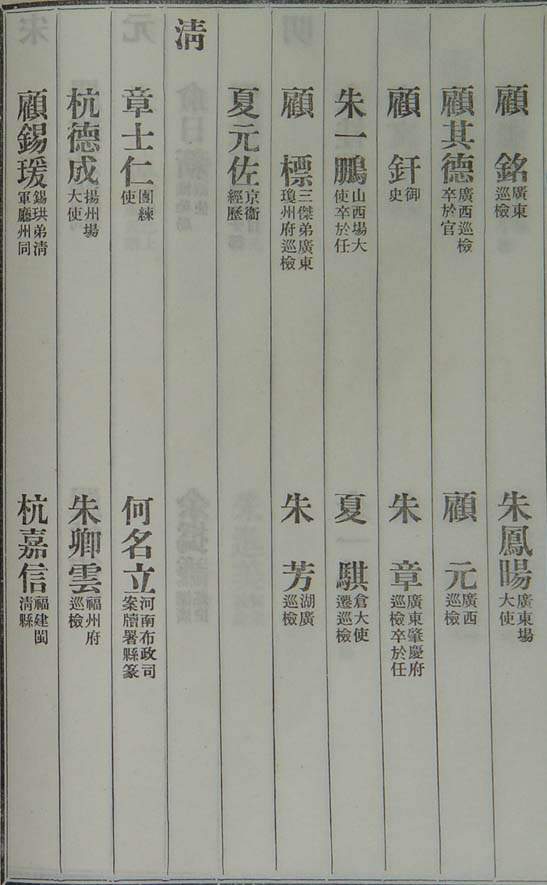 顧銘 廣東巡檢
朱鳳暘 廣東場大使
顧其德 廣西巡檢卒於官
顧元 廣西巡檢
顧釬 御史
朱章 廣東肇慶府巡檢卒於任
朱一鵬 山西場大使卒於任
夏一騏 倉大使遷巡檢
顧標 三傑弟廣東瓊州府巡檢
朱芳 湖廣巡檢
夏元佐 京衞經歷
清
章士仁 團練使
何名立 河南布政司案牘署縣篆
杭德成 揚州場大使
朱卿雲 福州府巡檢
顧錫瑗 錫珙弟清軍廳州同
杭嘉信 福建閩清縣